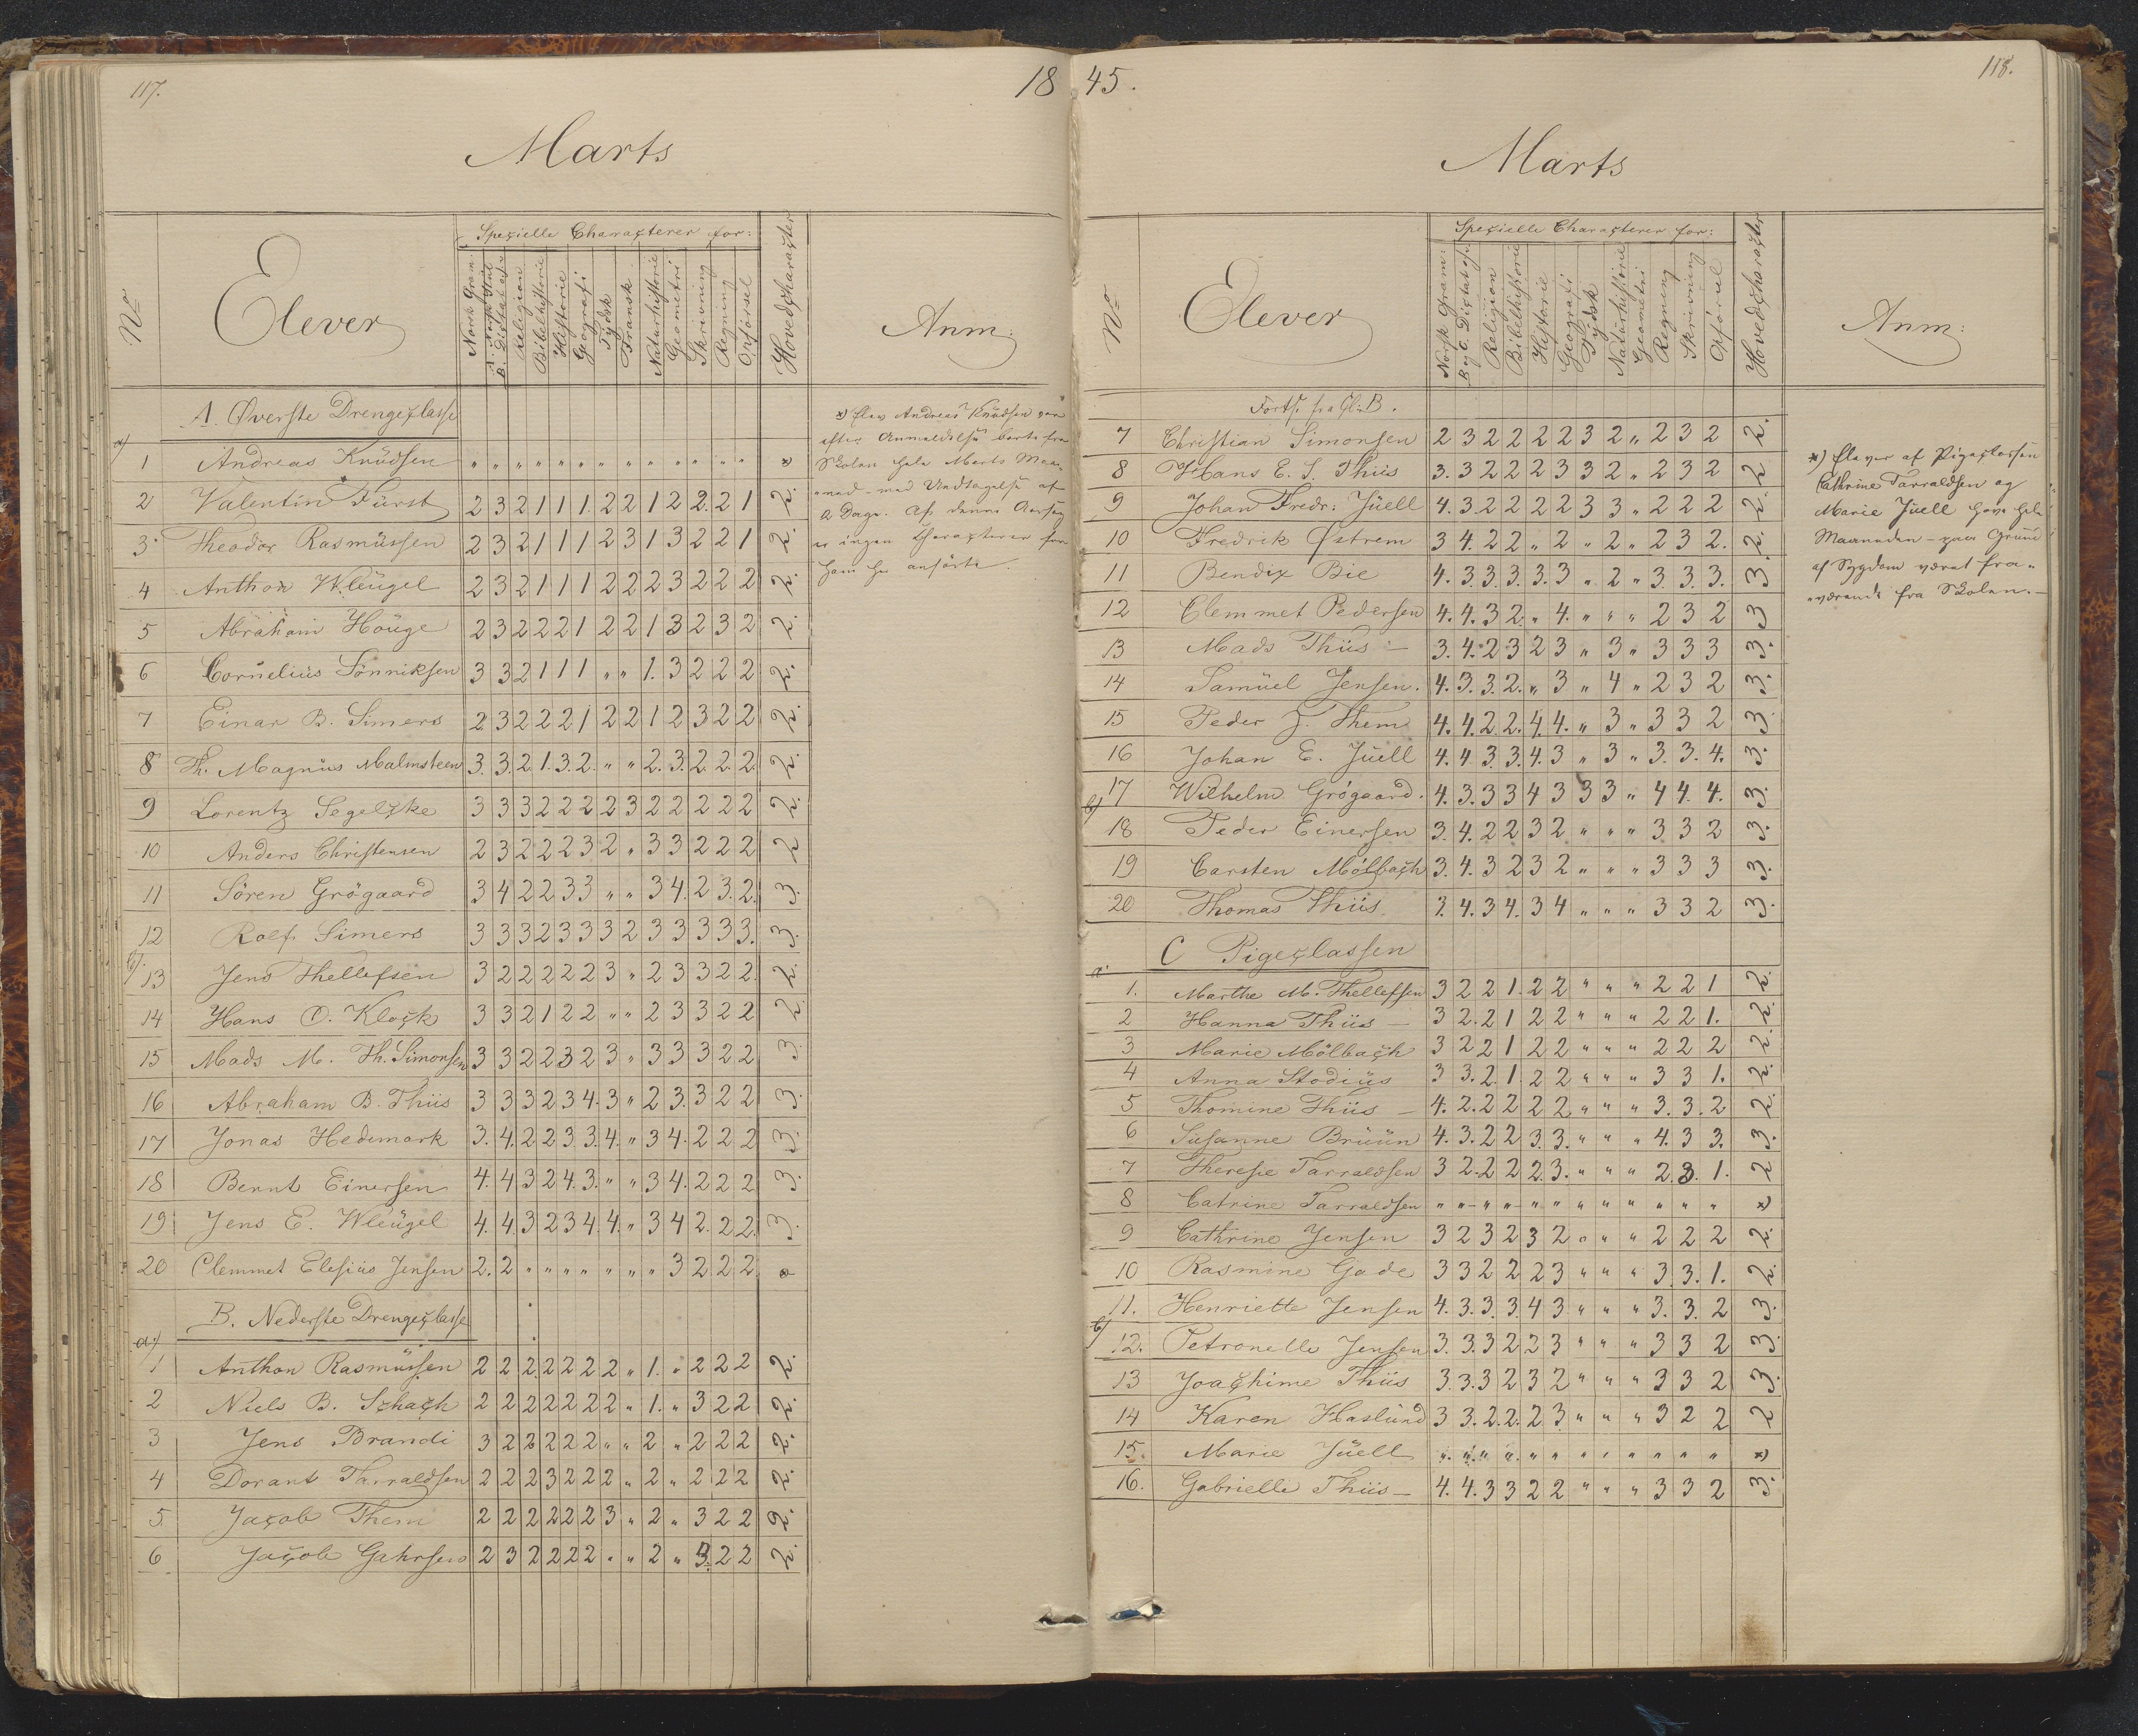 117.
18
Marts
Nº
Elever
Specielle Characterer for:
Norsk Gram:
A. Norsk Stiil
B. Dictat ofv
Religion
Bibelhistorie
Historie
Geografi
Tydsk
Fransk
Naturhistorie
Geometri
Skrivning
Regning
Opførsel
Hovedcharacter
Anm:
A. Øverste Drengeclasse
a)
1 Andreas Knudsen " " " " " " " " " " " " " " *
2 Valentin Fürst 2 3 2 1 1 1 2 2 1 2 2. 2 1 2.
3 Theodor Rasmussen 2 3 2 1 1 1 2 3 1 3 2 2 1 2.
4 Anthon Wleugel 2 3 2 1 1 1 2 2 2 3 2 2 2 2.
5 Abraham Houge 2 3 2 2 2 1 2 2 1 3 2 3 2 2.
6 Cornelius Sönniksen 3 3 2 1 1 1 " " 1. 3 2 2 2 2.
7 Einar B. Simers 2 3 2 2 2 1 2 2 1 2 3 2 2 2.
8 Th. Magnus Malmsteen 3. 3. 2 1. 3. 2. " " 2. 3. 2. 2. 2. 2.
9 Lorentz Segelcke 3 3 3 2 2 2 2 3 2 2 2 2 2 2.
10 Anders Christensen 2 3 2 2 2 3 2 " 3 3 2 2 2 2
11 Sören Grögaard 3 4 2 2 3 3 " " 3 4. 2 3. 2. 3.
12 Rolf Simers 3 3 3 2 3 3 3 2 3 3 3 3 3. 3.
b).
13 Jens Thellefsen 3 2 2 2 2 2 3 " 2 3 3 2 2. 2.
14 Hans O. Klock 3 3 2 1 2 2 " " 2 3 3 2 2 2.
15 Mads M. Th. Simonsen 3 3 2 2 3 2 3 " 3 3 3 2 2 3.
16 Abraham B. Thiis 3 3 3 2 3 4. 3 " 2 3. 3 2 2 3.
17 Jonas Hedemark 3. 4. 2. 2 3 3. 4. " 3 4. 2 2 2 3.
18 Bernt Einersen 4. 4 3 2 4. 3. " " 3 4. 2 2 2 3.
19 Jens E. Wleugel 4. 4. 3 2 3 4. 4. " 3 4 2. 2 2. 3.
20 Clemmet Elesius Jensen 2. 2 " " " " " " " 3 2 2 2 *
B. Nederste Drengeclasse
a)
1 Anthon Rasmussen 2 2 2. 2 2 2 2 " 1. " 2 2 2 2.
2 Niels B. Schach 2 2 2 2 2 2 2 " 1. " 3 2 2 2.
3 Jens Brandi 3 2 2 2 2 2 " " 2 " 2 2 2 2.
4 Dorant Tarraldsen 2 2 2 3 2 2 2 " 2 " 2 2 2 2.
5 Jacob Them 2 2 2 2 2 2 3 " 2 " 3 2 2 2.
6 Jacob Gahrsen 2 3 2 2 2 2 " " 2 " 3. 2 2 2.
*) Elev Andreas Knudsen var
efter Anmeldelse borte fra
Skolen hele Marts Maa-
ned - med Undtagelse af
2 Dage. Af denne Aarsag
er ingen Characterer for
ham her anførte.
45.
118.
Marts
Nº
Elever
Specielle Characterer for:
Norsk Gram:
B og C. Dictat ofv
Religion
Bibelhistorie
Historie
Geografi
Tydsk
Naturhistorie
Geometri
Regning
Skrivning
Opførsel
Hovedcharacter
Anm:
Forts. fra Cl. B.
7 Christian Simonsen 2 3 2 2 2 2 3 2 " 2 3 2 2.
8 Hans E. S. Thiis 3. 3 2 2 2 3 3 2 " 2 3 2 2
9 Johan Fredr: Juell 4. 3. 2 2 2 2 3 3 " 2 2 2 2.
10 Fredrik Østrem 3 4. 2 2 " 2 " 2 " 2 3 2. 2.
11 Bendix Bie 4. 3. 3. 3. 3. 3 " 2 " 3. 3. 3. 3.
12 Clemmet Pedersen 4. 4. 3 2. " 4. " " " 2 3 2 3
13 Mads Thiis - 3. 4. 2 3 2 3 " 3 " 3 3 3 3.
14 Samuel Jensen. 4. 3. 3. 2. " 3 " 4 " 2 3 2 3.
15 Peder J. Them 4. 4. 2 2. 4. 4. " 3 " 3 3 2 3
16 Johan E. Juell 4. 4 3. 3. 4. 3 " 3 " 3. 3. 4. 3.
b)
17 Wilhelm Grögaard. 4. 3. 3 3 4 3 3 3 " 4 4. 4. 3.
18 Peder Einersen 3. 4. 2 2 3 2 " " " 3 3 2 3.
19 Carsten Mölbach 3. 4. 3 2 3 2 " " " 3 3 3 3.
20 Thomas Thiis. 3. 4. 3 4. 3 4 " " " 3 3 2 3.
C Pigeclassen
a.
1. Marthe M. Thellefsen 3 2 2 1. 2 2 " " " 2 2 1 2.
2 Hanna Thiis - 3 2. 2 1 2 2 " " " 2 2 1. 2.
3 Marie Mölbach 3 2 2 1 2 2 " " " 2 2 2 2.
4 Anna Stodius 3 3. 2. 1. 2 2 " " " 3 3 1. 2.
5 Thomine Thiis - 4. 2. 2 2 2 2 " " " 3. 3. 2 2.
6 Susanne Bruun 4. 3. 2 2 3. 3. " " " 4. 3 3. 3.
7 Therese Tarraldsen 3 2. 2 2 2. 3. " " " 2. 3. 1. 2
8 Catrine Tarraldsen " " " " " " " " " " " " *
9 Cathrine Jensen 3 2 3 2 3 2 " " " 2 2 2 2.
10 Rasmine Gade 3 3 2 2 2 3 " " " 3. 3. 1. 2.
11. Henriette Jensen 4. 3. 3. 3 4 3 " " " 3. 3. 2 3.
b)
12. Petronelle Jensen 3. 3. 3 2 2 3 " " " 3 3 2 3.
13 Joachime Thiis 3. 3. 3 2 3 2 " " " 3 3 2 3.
14 Karen Haslund 3 3. 2. 2. 2 3. " " " 3 2 2 2
15. Marie Juell " " " " " " " " " " " " *
16. Gabrielle Thiis - 4. 4. 3 3 2 2 " " " 3 3 2 3.
*) Elever af Pigeclassen
Cathrine Tarraldsen og
Marie Juell have hele
Maaneden - paa Grund
af Sygdom været fra-
værende fra Skolen. -